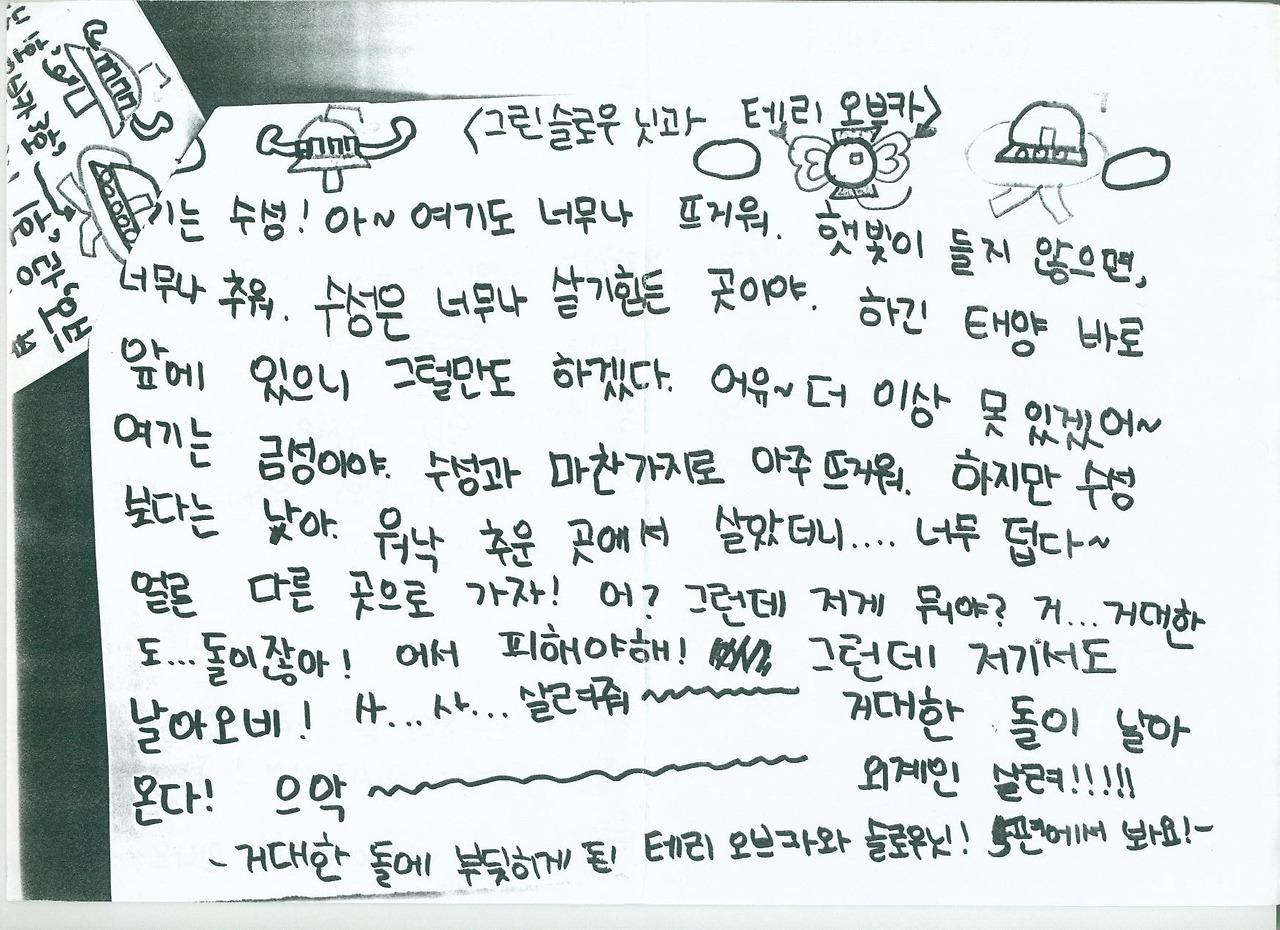 <그린슬로우 닛과 테리 오브카>
기는 수성! 아~ 여기도 너무나 뜨거워. 햇빛이 들지 않으면,
너무나 추워. 수성은 너무나 살기힘든 곳이야. 하긴 태양 바로
앞에 있으니 그럴만도 하겠다. 어유~ 더 이상 못 있겠어~
여기는 금성이야. 수성과 마찬가지로 아주 뜨거워. 하지만 수성
보다는 낮아. 워낙 추운 곳에서 살았더니.... 너무 덥다~
얼른 다른 곳으로 가자! 어? 그런데 저게 뭐야? 거... 거대한
도... 돌이잖아! 어서 피해야해! 그런데 저기서도
날아오네! 사... 사... 살려줘~ 거대한 돌이 날아
온다! 으악~ 외계인 살려!!!!!
- 거대한 돌에 부딪히게 된! 테리 오브카와 슬로우닛! 5편에서 봐요!-